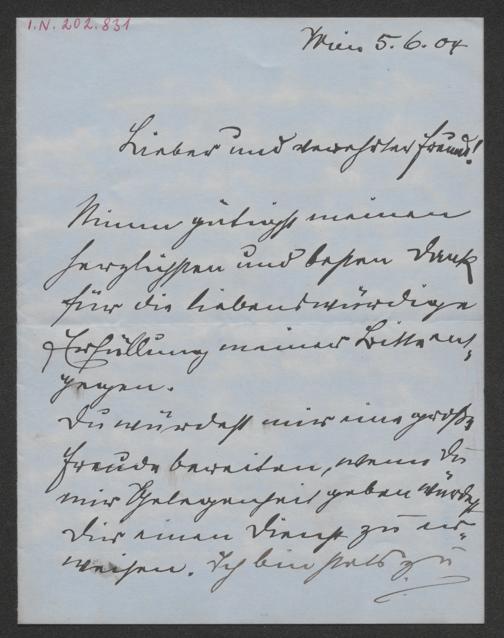 I.N. 202.831
Wien 5.6.04
Lieber und verehrter Freund!
Nimm gütigst meinen
herzlichsten und besten Dank
für die liebenswürdige
Erfüllung meiner Bitte ent-
gegen.
Du würdest mir eine große
Freude bereiten, wenn Du
mir Gelegenheit geben würdest
Dir einen Dienst zu er-
weisen. Ich bin stets zu